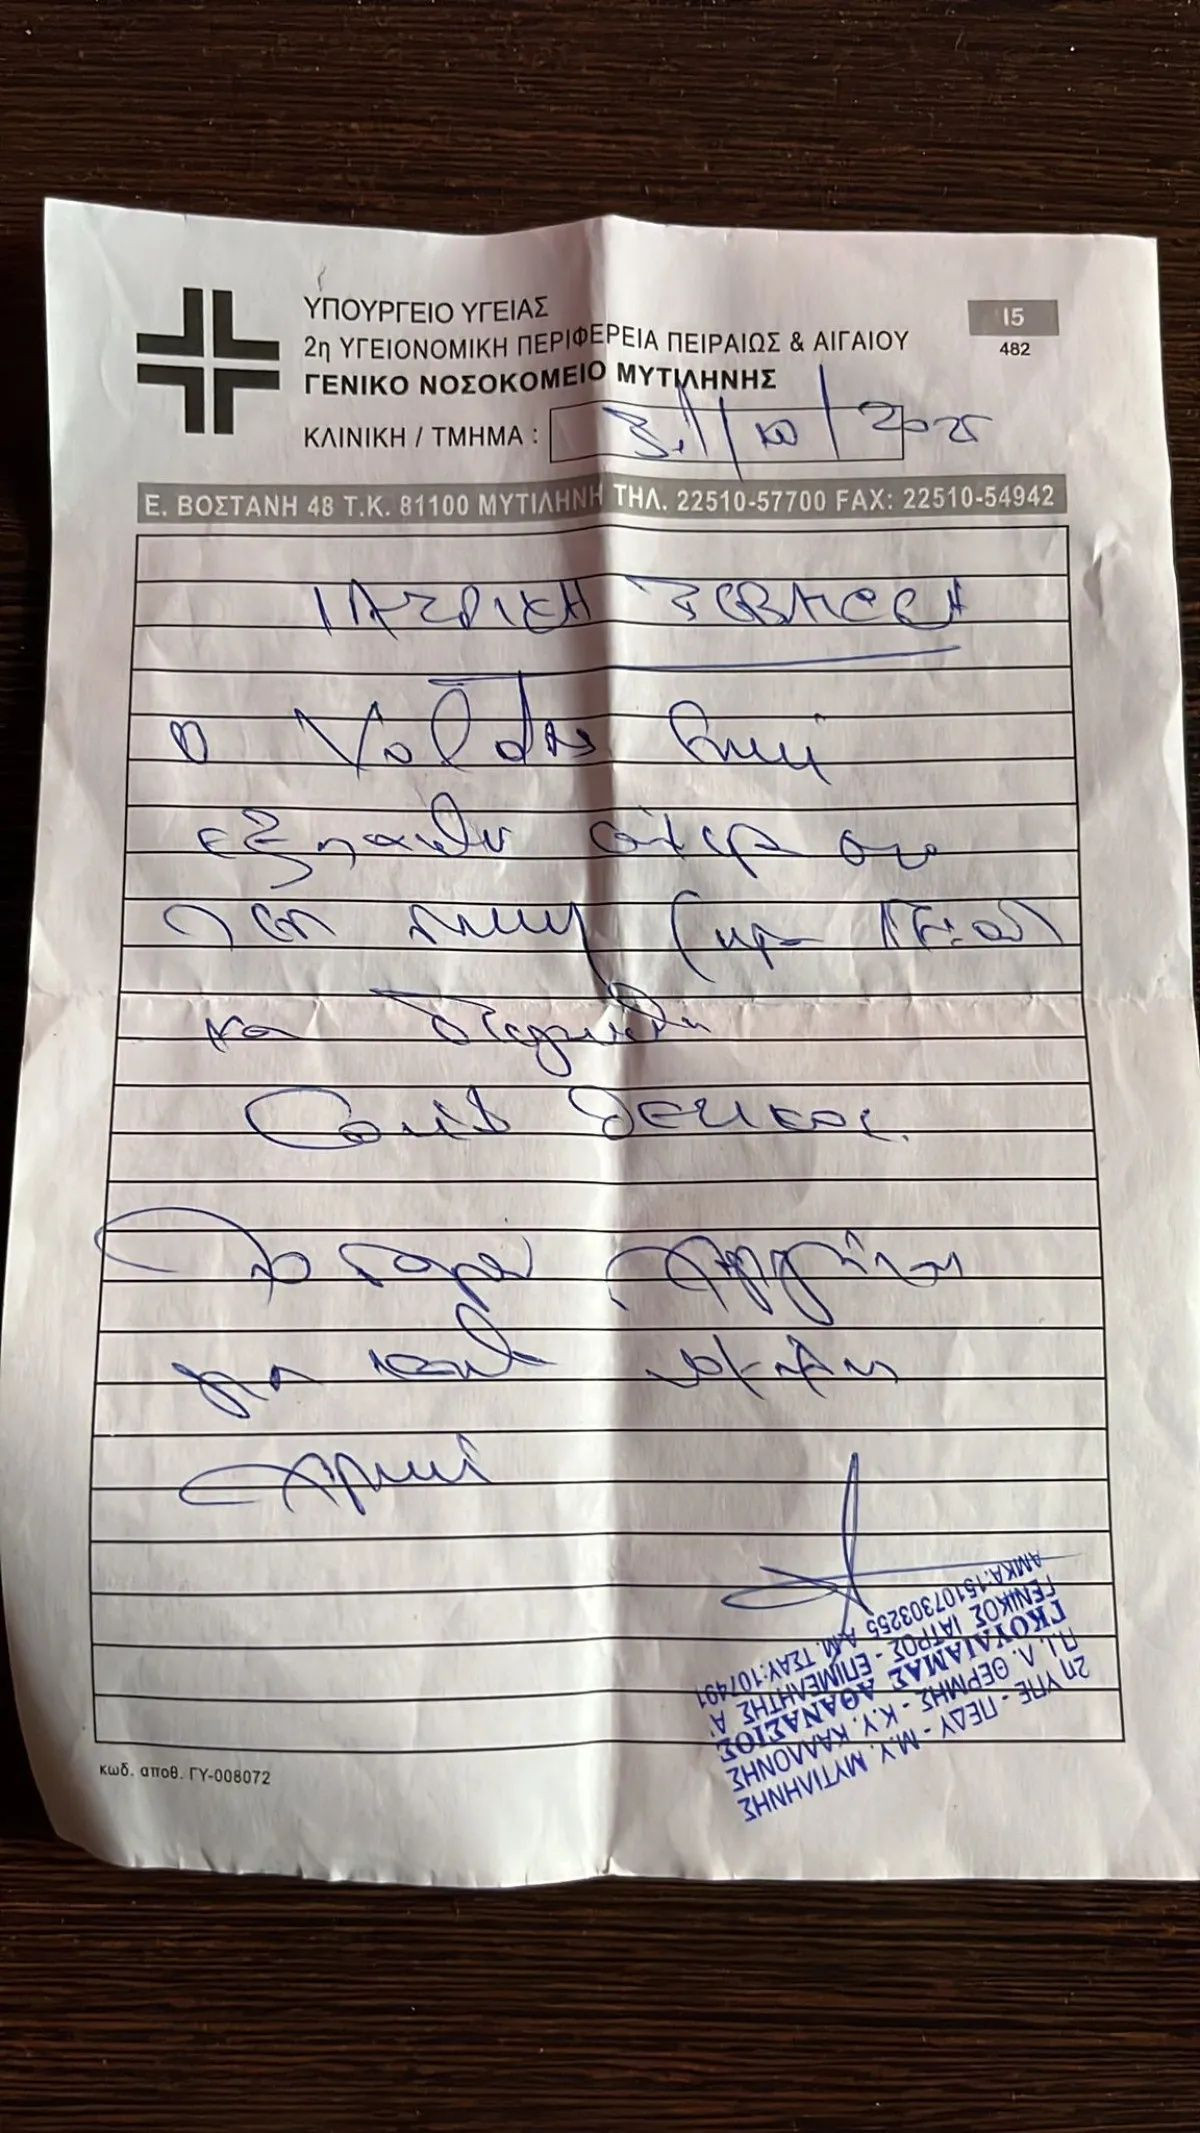 ΥΠΟΥΡΓΕΙΟ ΥΓΕΙΑΣ
2η ΥΓΕΙΟΝΟΜΙΚΗ ΠΕΡΙΦΕΡΕΙΑ ΠΕΙΡΑΙΩΣ & ΑΙΓΑΙΟΥ
ΓΕΝΙΚΟ ΝΟΣΟΚΟΜΕΙΟ ΜΥΤΙΛΗΝΗΣ
Ι5
482
ΚΛΙΝΙΚΗ / ΤΜΗΜΑ :
31/10/2025
Ε. ΒΟΣΤΑΝΗ 48 Τ.Κ. 81100 ΜΥΤΙΛΗΝΗ ΤΗΛ. 22510-57700 FAX: 22510-54942
ΙΑΤΡΙΚΗ ΒΕΒΑΙΩΣΗ
Ο
εξετάσθη σήμερα στο
ΤΕΠ
και διεγνώσθη
Covid θετικός.
Το παρόν χορηγείται
για κάθε νόμιμη
χρήση
2η ΥΠΕ - ΠΕΔΥ - Μ.Υ. ΜΥΤΙΛΗΝΗΣ
Π.Ι. Λ. ΘΕΡΜΗΣ - Κ.Υ. ΚΑΛΛΟΝΗΣ
ΓΚΟΥΛΙΑΜΑΣ ΑΘΑΝΑΣΙΟΣ
ΓΕΝΙΚΟΣ ΙΑΤΡΟΣ - ΕΠΙΜΕΛΗΤΗΣ Α'
ΑΜΚΑ:15107303255 Α.Μ. ΤΣΑΥ:107491
κωδ. αποθ. ΓΥ-008072